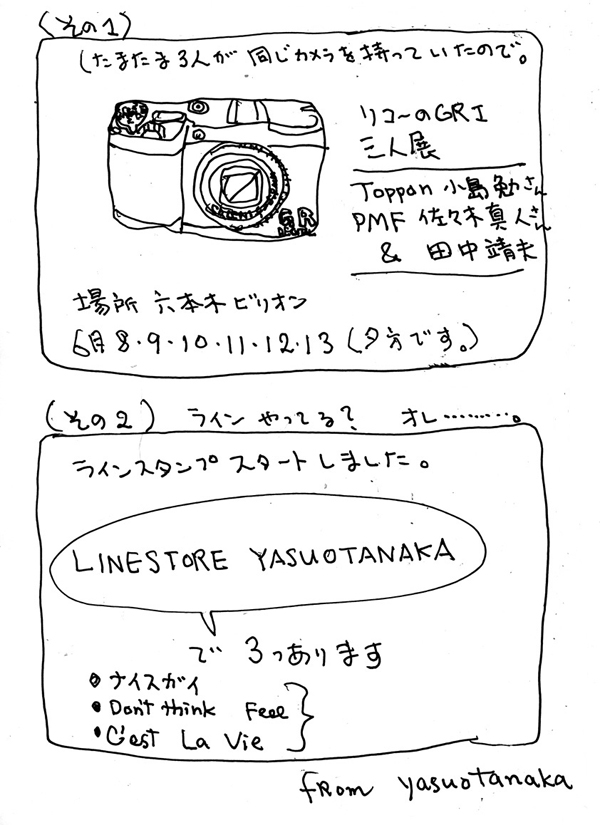 (その1)
(たまたま3人が同じカメラを持っていたので。
リコーのGRI
三人展
Toppan 小島勉さん
PMF 佐々木真人さん
& 田中靖夫
GR
場所 六本木ビリオン
6月8・9・10・11・12・13 (夕方です。)
(その2) ラインやってる? オレ………。
ラインスタンプスタートしました。
LINESTORE YASUOTANAKA
で 3つあります
• ナイスガイ
• Don't think Feel
• C'est La Vie
from yasuotanaka